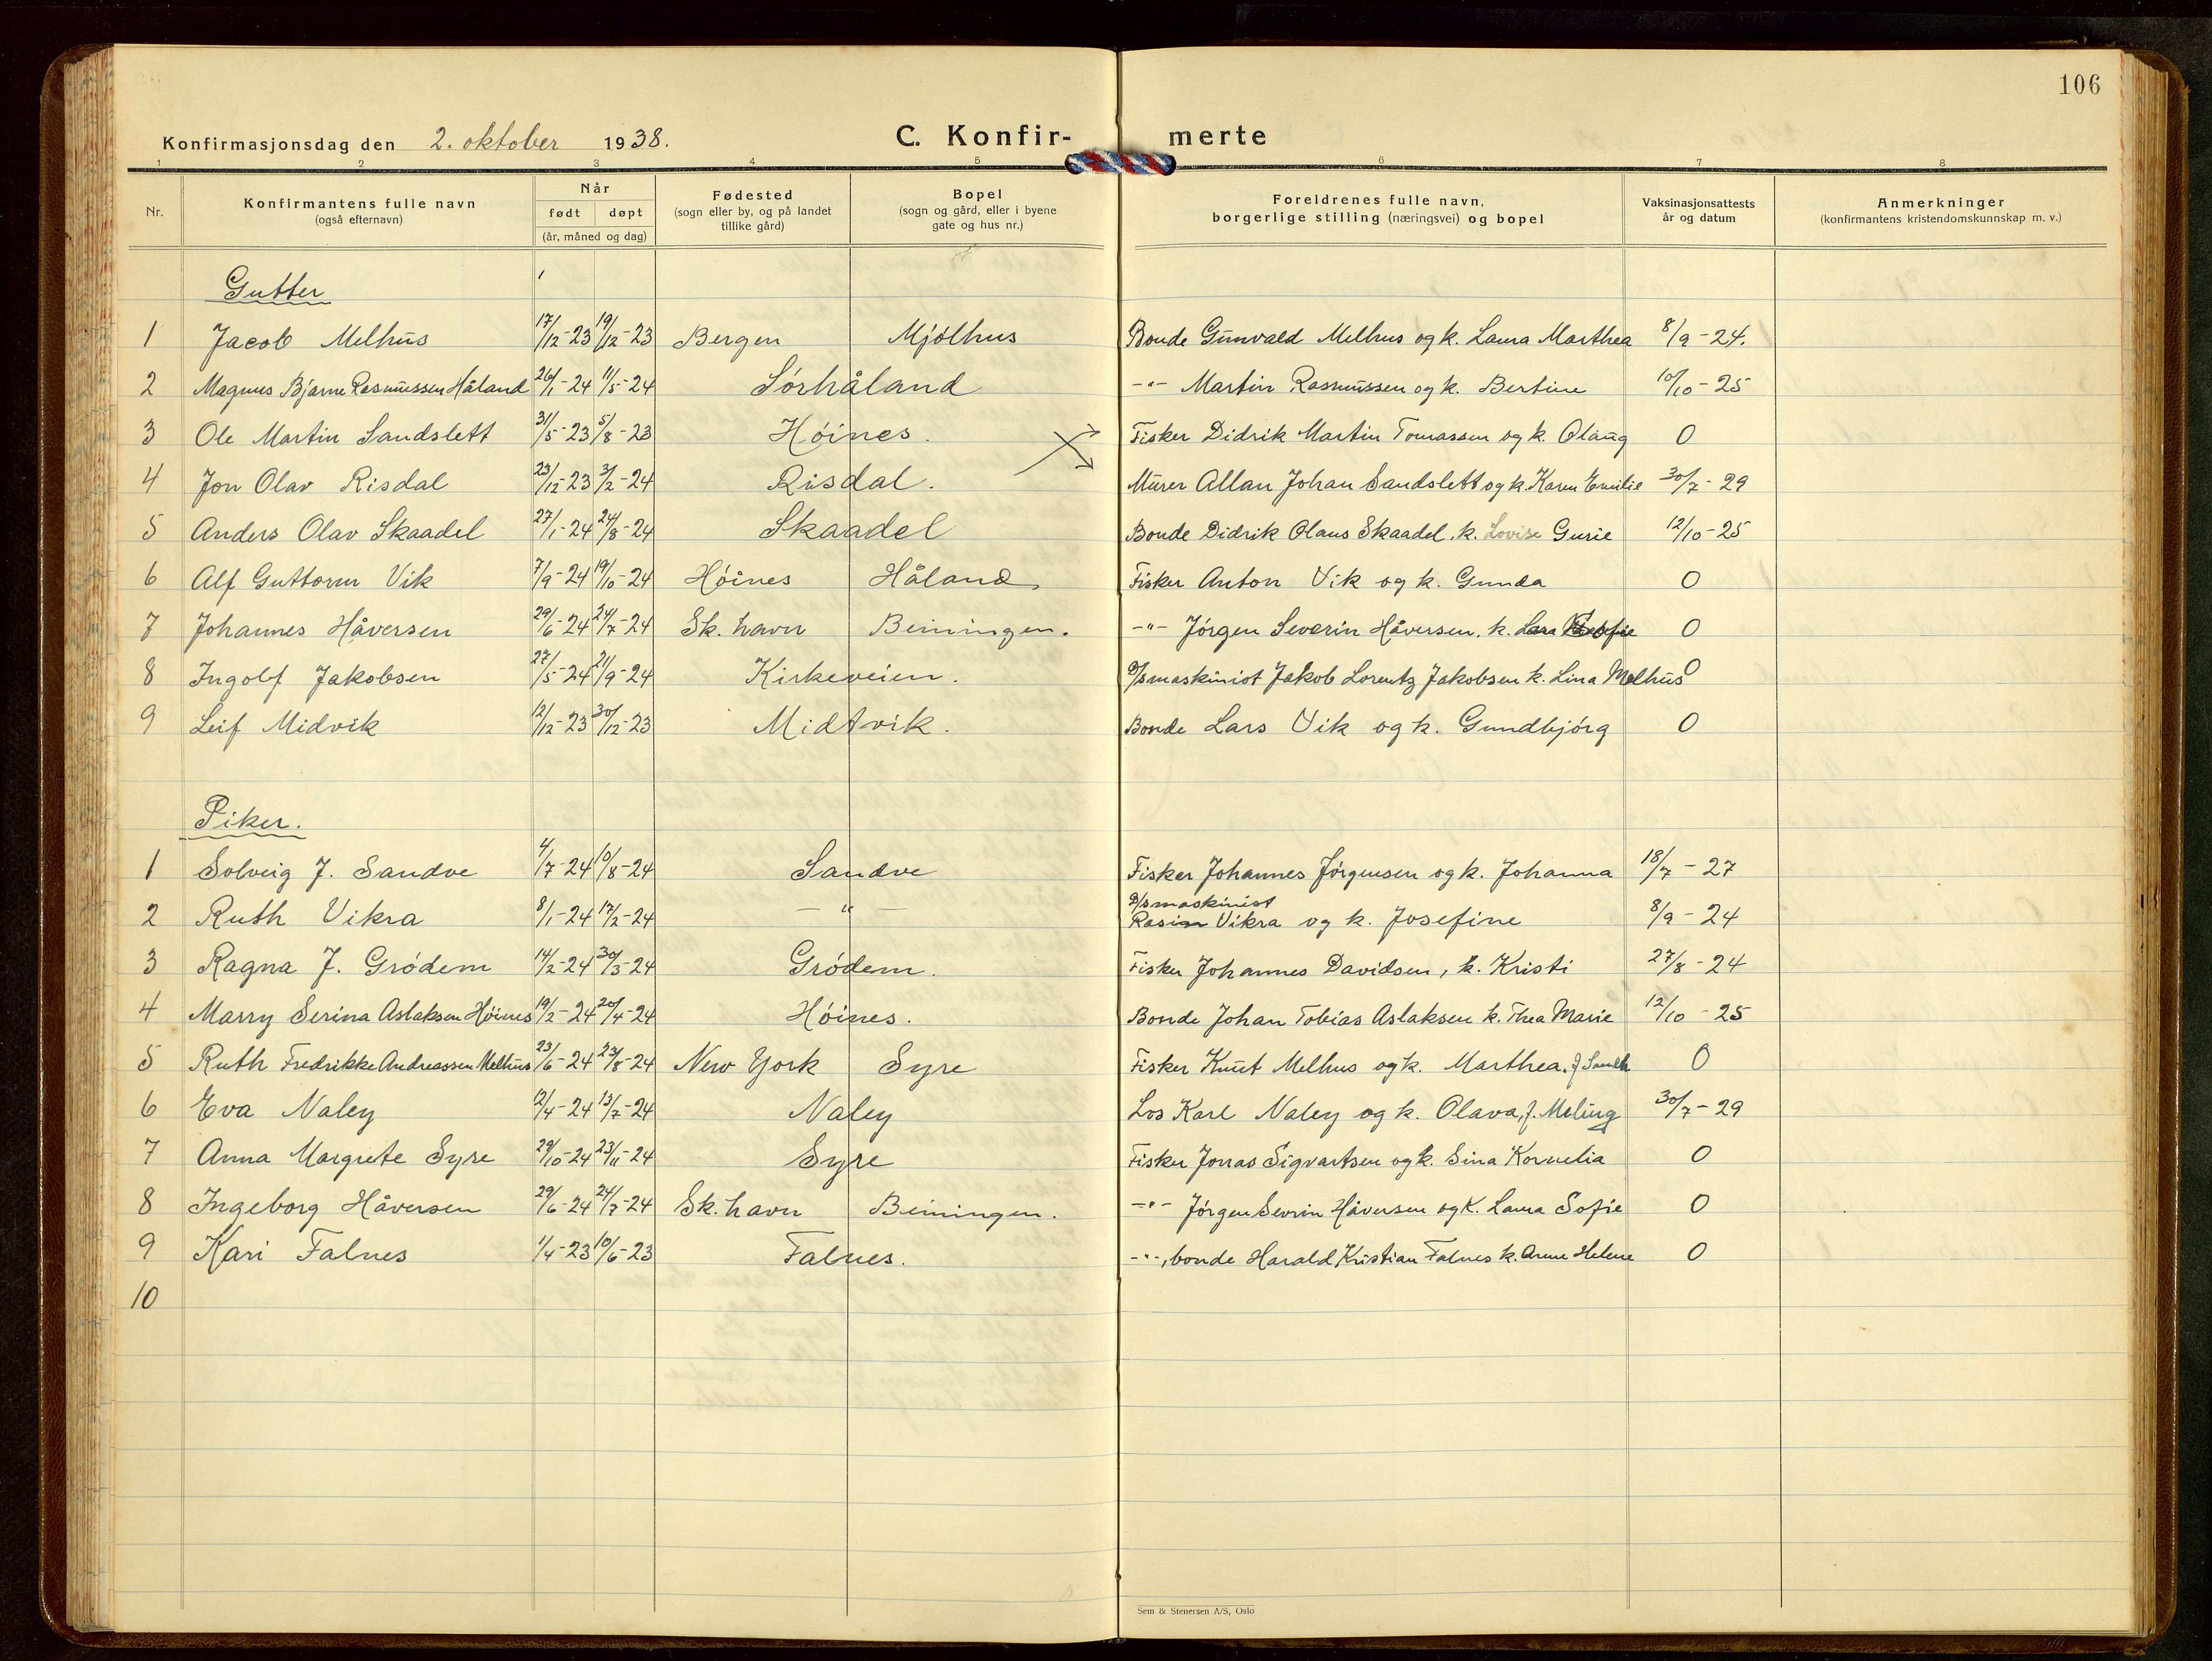 106
Konfirmasjonsdag den 2. oktober 1938. C. Konfir- merte
1 2 3 4 5 6 7 8
Nr. Konfirmantens fulle navn (også efternavn) Når født døpt (år, måned og dag) Fødested (sogn eller by, og på landet tillike gård) Bopel (sogn og gård, eller i byene gate og hus nr.) Foreldrenes fulle navn, borgerlige stilling (næringsvei) og bopel Vaksinasjonsattests år og datum Anmerkninger (konfirmantens kristendomskunnskap m. v.)
Gutter
1 Jacob Melhus 17/12-23 19/12-23 Bergen Mjølhus Bonde Gunvald Melhus og k. Laura Marthea 8/9-24.
2 Magnus Bjarne Rasmussen Håland 26/1-24 11/5-24 Sørhåland -"- Martin Rasmussen og k. Bertine 10/10-25
3 Ole Martin Sandslett 31/5-23 5/8-23 Høines. Fisker Didrik Martin Tomassen og k. Olaug 0
4 Jon Olav Risdal 23/12-23 3/2-24 Risdal. Murer Allan Johan Sandslett og k. Karen Emilie 30/7-29
5 Anders Olav Skaadel 27/1-24 24/8-24 Skaadel Bonde Didrik Olaus Skaadel, k. Lovise Gurie 12/10-25
6 Alf Guttorm Vik 7/9-24 19/10-24 Høines Håland Fisker Anton Vik og k. Gunda 0
7 Johannes Håversen 29/6-24 24/7-24 Sk. havn Beiningen. -"- Jørgen Severin Håversen, k. 0
8 Ingolf Jakobsen 27/5-24 21/9-24 Kirkeveien. D/smaskinist Jakob Lorentz Jakobsen k. Lina Melhus 0
9 Leif Midvik 12/12-23 30/12-23 Midtvik. Bonde Lars Vik og k. Gundbjørg 0
Piker.
1 Solveig J. Sandve 4/7-24 10/8-24 Sandve Fisker Johannes Jørgensen og k. Johanna 18/7-27
2 Ruth Vikra 8/1-24 17/2-24 -"- D/smaskinist Rasim Vikra og k. Josefine 8/9-24
3 Ragna J. Grødem 14/2-24 30/3-24 Grødem. Fisker Johannes Davidsen, k. Kristi 27/8-24
4 Marry Serina Aslaksen Høines 19/2-24 20/4-24 Høines. Bonde Johan Tobias Aslaksen k. Thea Marie 12/10-25
5 Ruth Fredrikke Andreassen Melhus 23/6-24 23/8-24 New York Syre Fisker Knut Melhus og k. Marthea, f. 0
6 Eva Naley 12/4-24 13/7-24 Naley Los Karl Naley og k. Olava, f. Meling 30/7-29
7 Anna Margrete Syre 29/10-24 23/11-24 Syre Fisker Jonas Sigvartsen og k. Sina Kornelia 0
8 Ingeborg Håversen 29/6-24 24/7-24 Sk. havn Beiningen. -"- Jørgen Sevrin Håversen og k. Laura Sofie 0
9 Kari Falnes 1/4-23 10/6-23 Falnes. -"-, bonde Harald Kristian Falnes k. Anne Helene 0
10
Sem & Stenersen A/S, Oslo